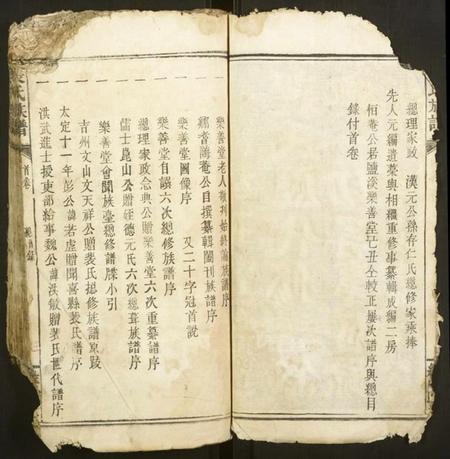 總理家政 漢元公孫存仁氏總修家乘捧
先人元編遺槀與相續重修事纂輯成編二房
恒菴公若鹽淡樂善堂乙丑仝較正屢次譜序與總目
錄付首卷
一 樂善堂老人
耆菴公目撰纂輯開刊族譜序
一 樂善堂圖像序 又二十字冠首說
一 樂善堂自誤六次總修族譜序
總理家政念典公贈樂善堂六次重纂譜序
儒士崑山公贈姪德元氏六次總葺族譜序
一 樂善堂會閱族臺總修譜牒小引
一 吉州文山文天祥公贈裴氏總修族譜原跋
太定十一年彭公諱若虛贈聞喜縣裴氏譜序
洪武進士授吏部給事魏公諱洪敏贈裴氏世代譜序
裴氏族譜
首卷
氏族譜